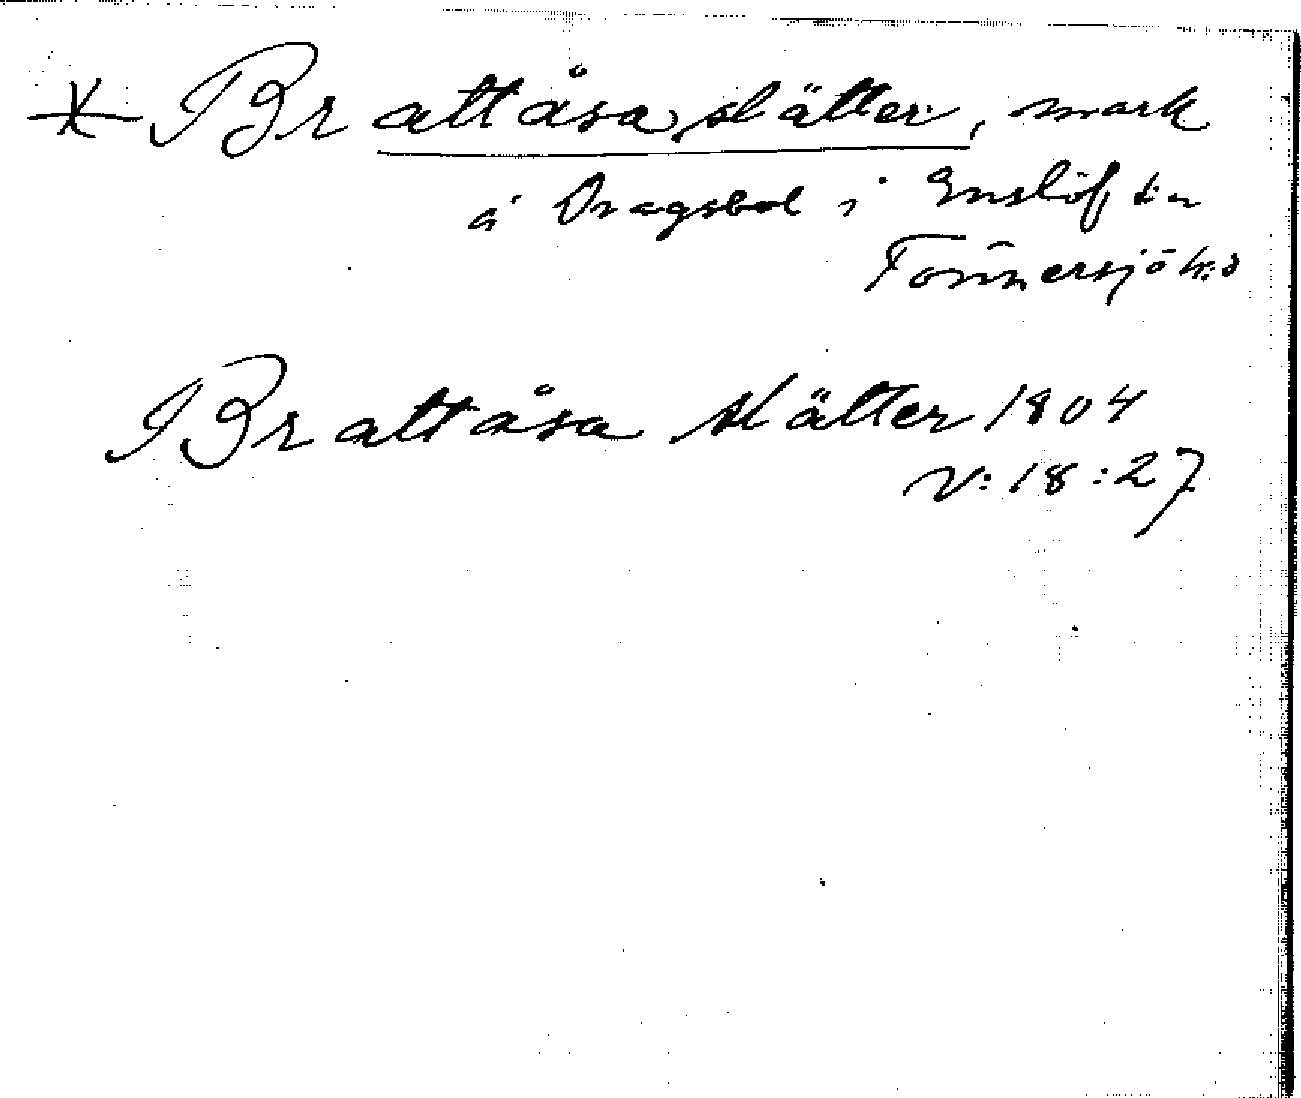 * Brattåsa slätter, mark
å Dragsbol i Enslöf sn
Tönnersjö hd
Brattåsa slätter 1804
V:18:27